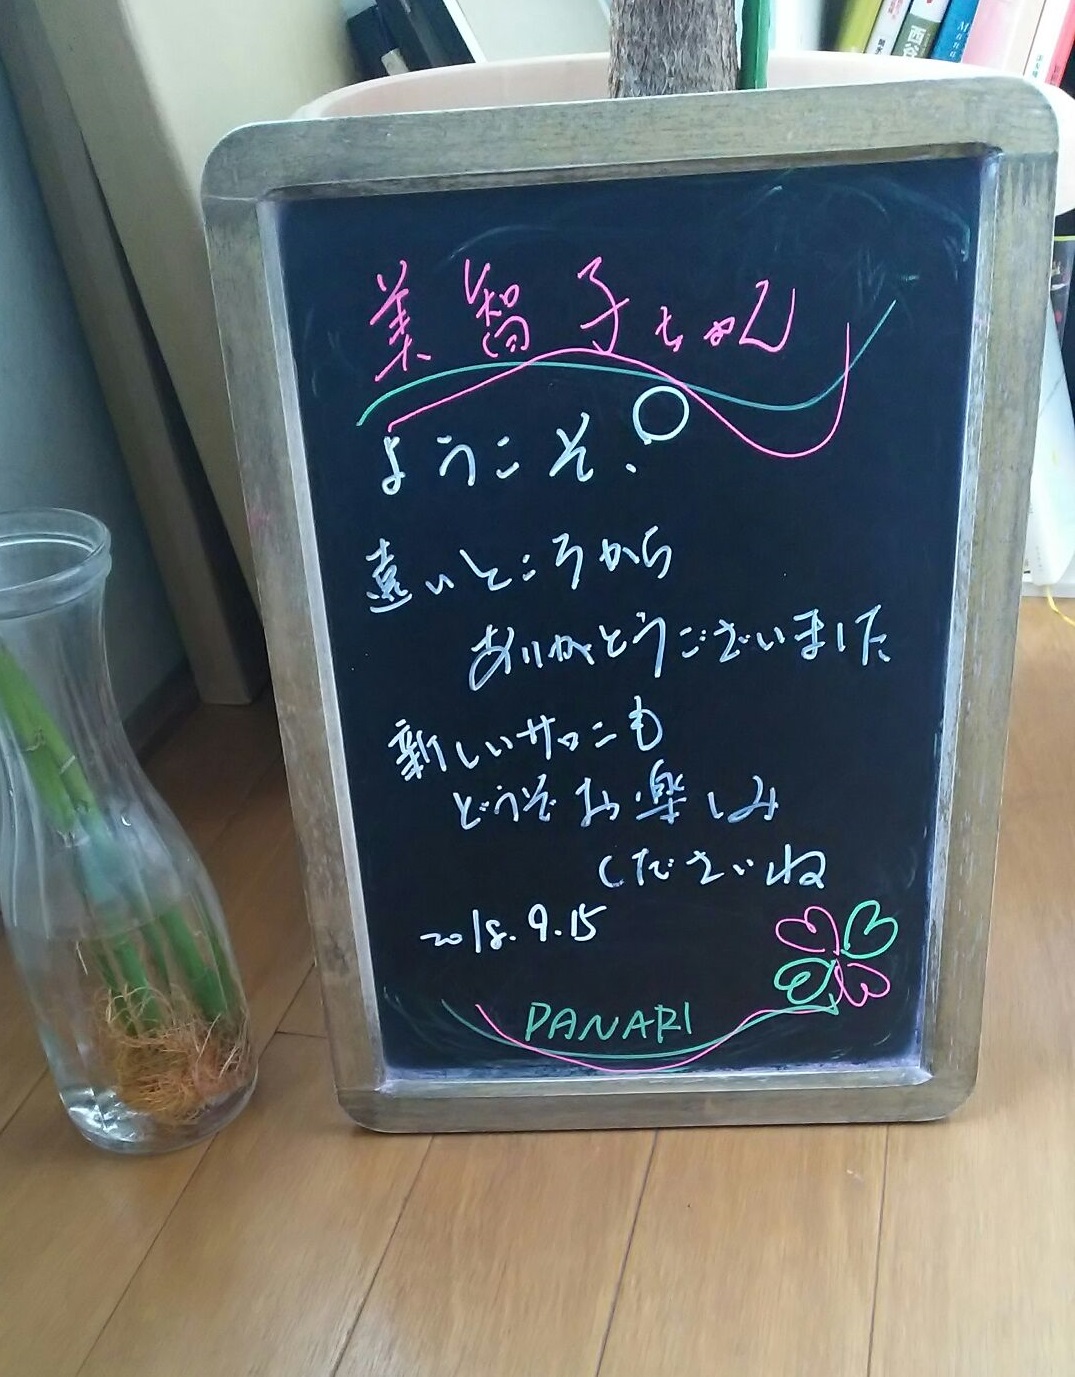 美智子ちゃん
ようこそ、
遠いところから
ありがとうございました
新しいサロンも
どうぞお楽しみ
くださいね
2018.9.15
PANARI